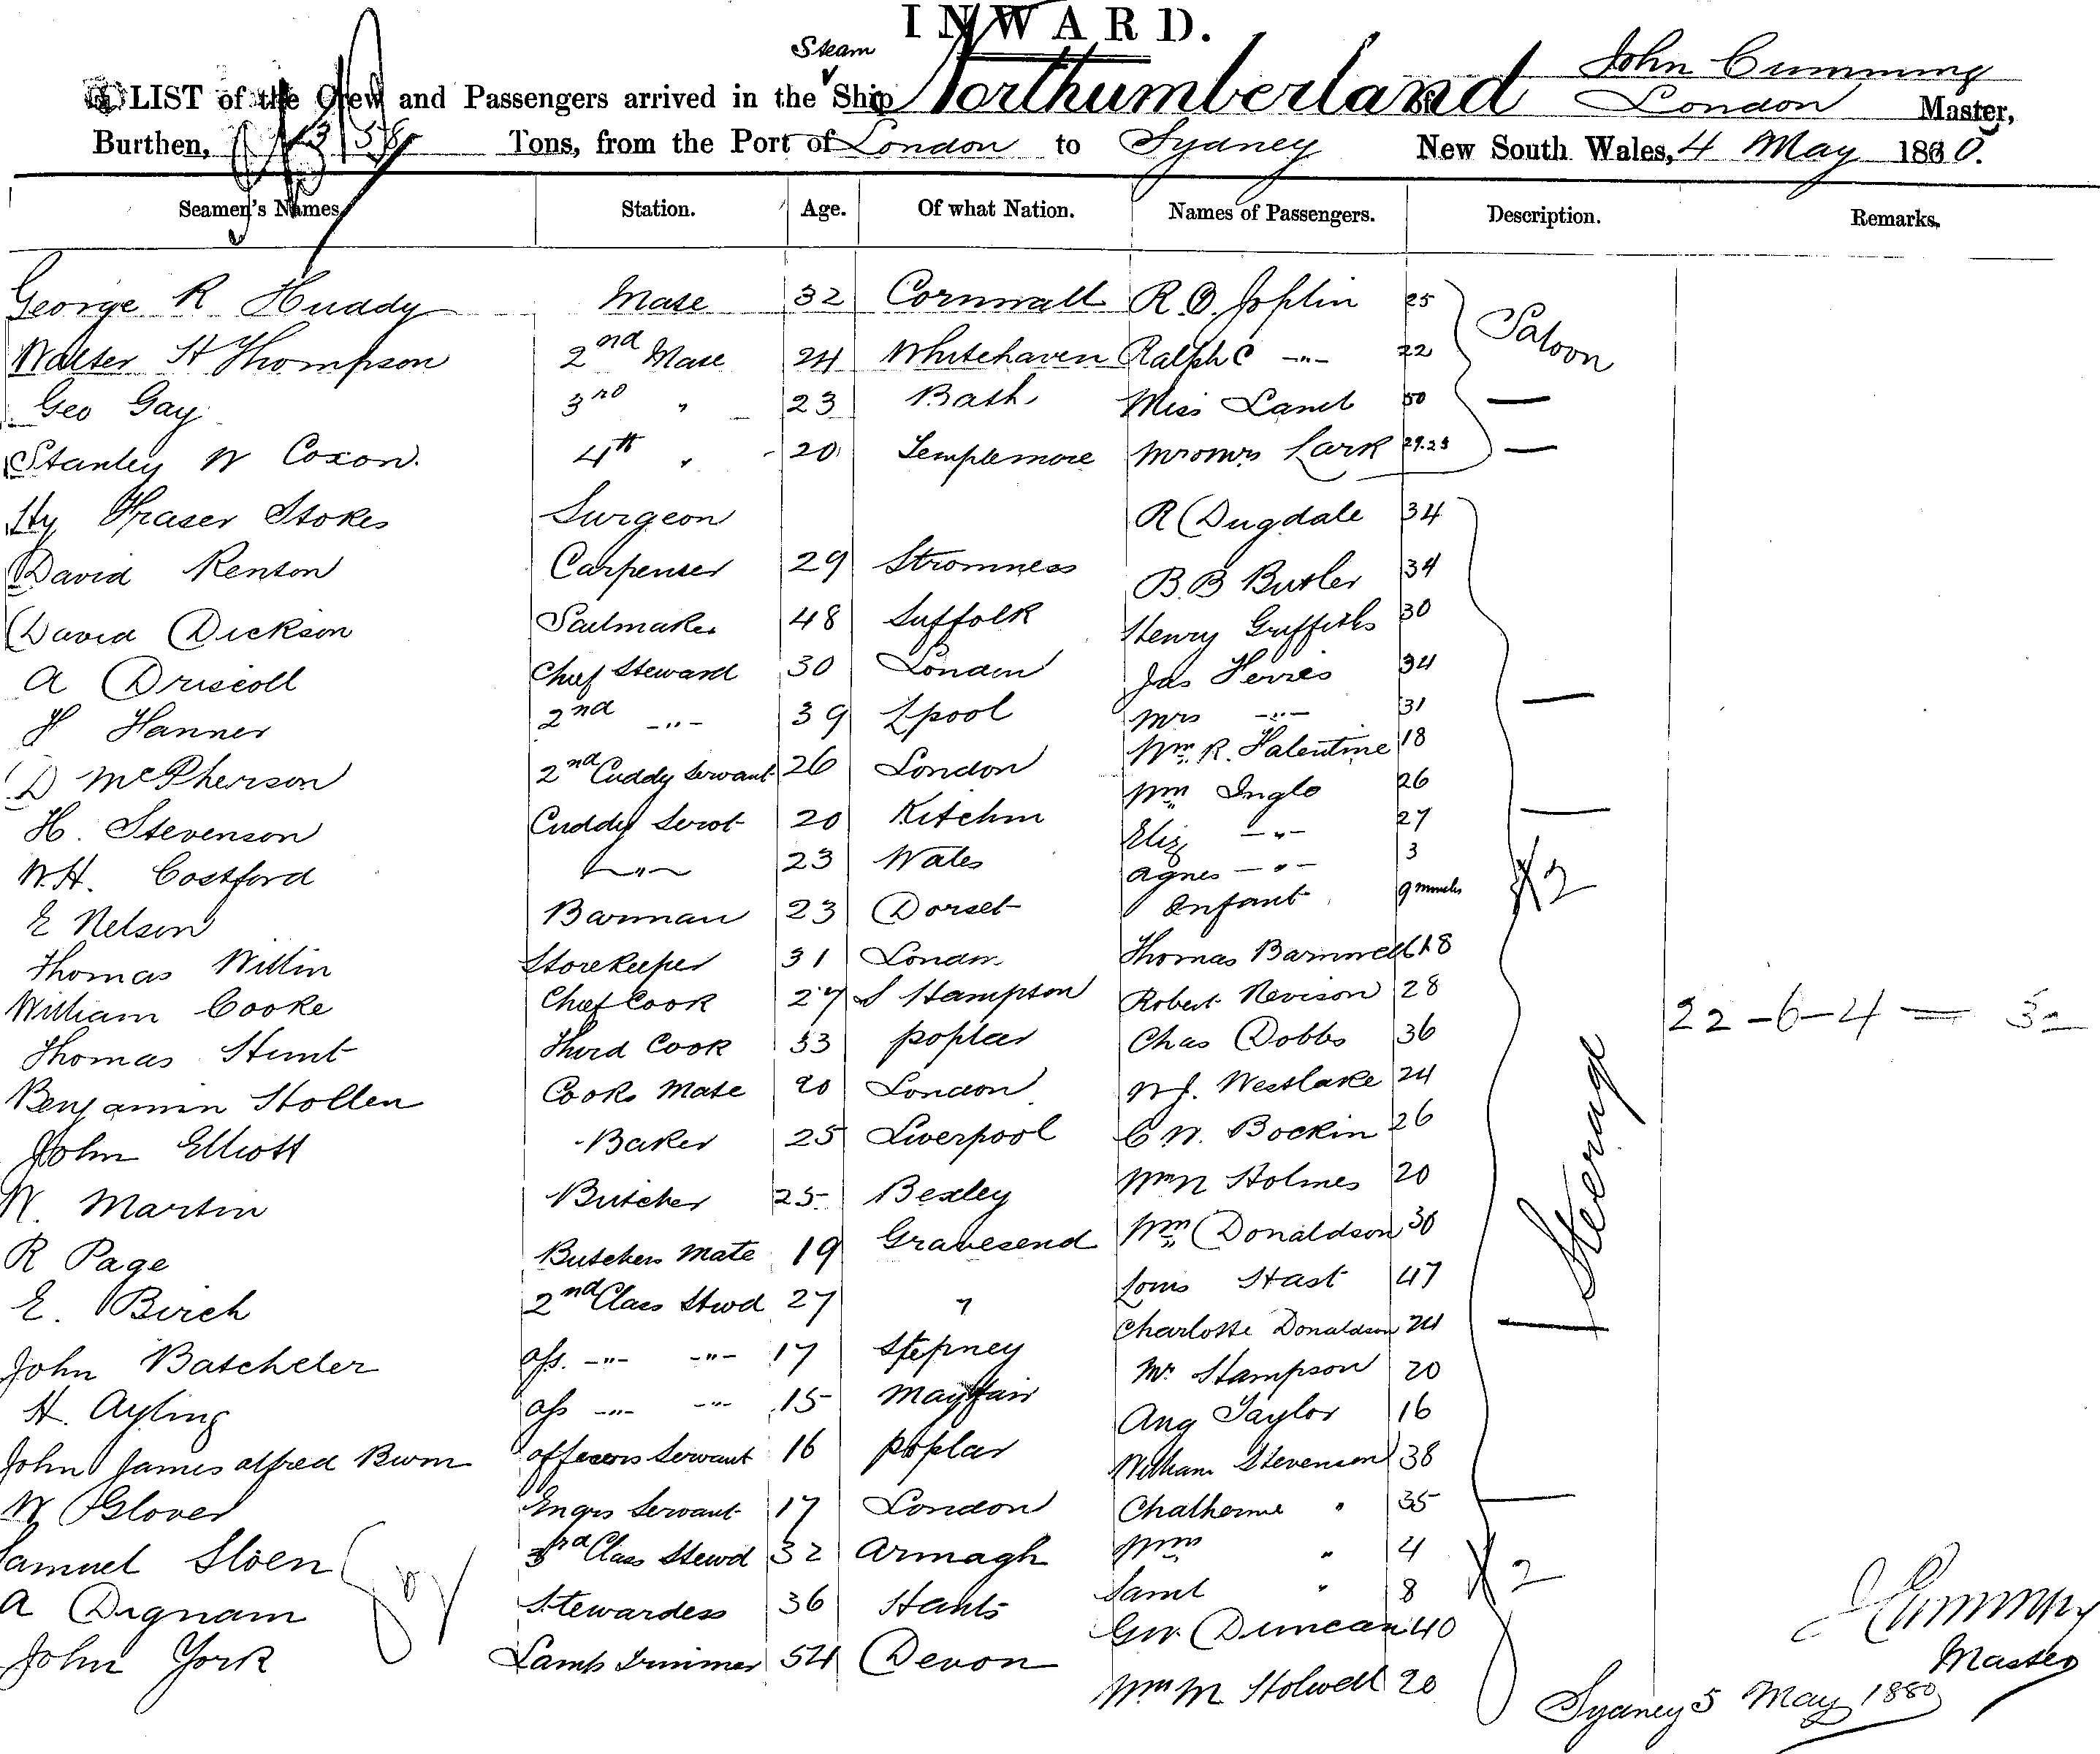 INWARD.
Steam
LIST of the Crew and Passengers arrived in the Ship Northumberland John Cumming
London Master,
Burthen, Tons, from the Port of London to Sydney New South Wales, 4 May 1880.
Seamen's Names Station. Age. Of what Nation. Names of Passengers. Description. Remarks.
George R Huddy Mate 32 Cornwall R. O. Joplin 25 Saloon
Walter H Thompson 2nd Mate 24 Whitehaven Ralph C —"— 22
Geo Gay 3rd " 23 Bath Miss 50 —
Stanley W Coxon. 4th " 20 Templemore Mr & Mrs Lark 29.25 —
Hy Fraser Stokes Surgeon R Dugdale 34
David Renton Carpenter 29 Stromness B. B Butler 34
David Dickson Sailmaker 48 Suffolk Henry Griffiths 30
A Driscoll Chief Steward 30 London Jas Ferries 34
H Hanner 2nd —"— 39 Lpool Mrs —"— 31 —
D McPherson 2nd Cuddy Servant 26 London Wm. R. 18
H. Stevenson Cuddy Servt 20 Wm Inglo 26
W.H. Costford —"— 23 Wales Eliz —"— 27 —
Agnes —"— 3
E Nelson Barman 23 Dorset Infant 9 months 2
Thomas Willin Storekeeper 31 London Thomas Barnwell 18
William Cooke Chief Cook 27 S Hampton Robert Nevison 28 22-6-4 =
Thomas Hunt Third Cook 33 poplar Chas Dobbs 36 Steerage
Benjamin Hollen Cooks Mate 20 London W J. Westlake 24
John Elliott Baker 25 Liverpool C W. Bockin 26
W. Martin Butcher 25 Bexley Wm N Holmes 20
R Page Butchers Mate 19 Gravesend Wm Donaldson 30
E. Birch 2nd Class Stwd 27 " Louis Hast 47
Charlotte Donaldson 24 —
John Batcheler ass. —"— —"— 17 Stepney Mr Hampson 20
H. Ayling ass —"— —"— 15 Mayfair Aug Taylor 16
John James Alfred officers Servant 16 poplar William Stevenson 38
W Glover Engrs Servant 17 London " 35 —
Samuel Sloen 3rd Class Stewd 32 Armagh Wm " 4
A Dignam Stewardess 36 Hants Saml " 8 2
John York Lamp Trimmer 54 Devon Geo. Duncan 40
Wm M Holwell 20
J Cumming
Master
Sydney 5 May 1880